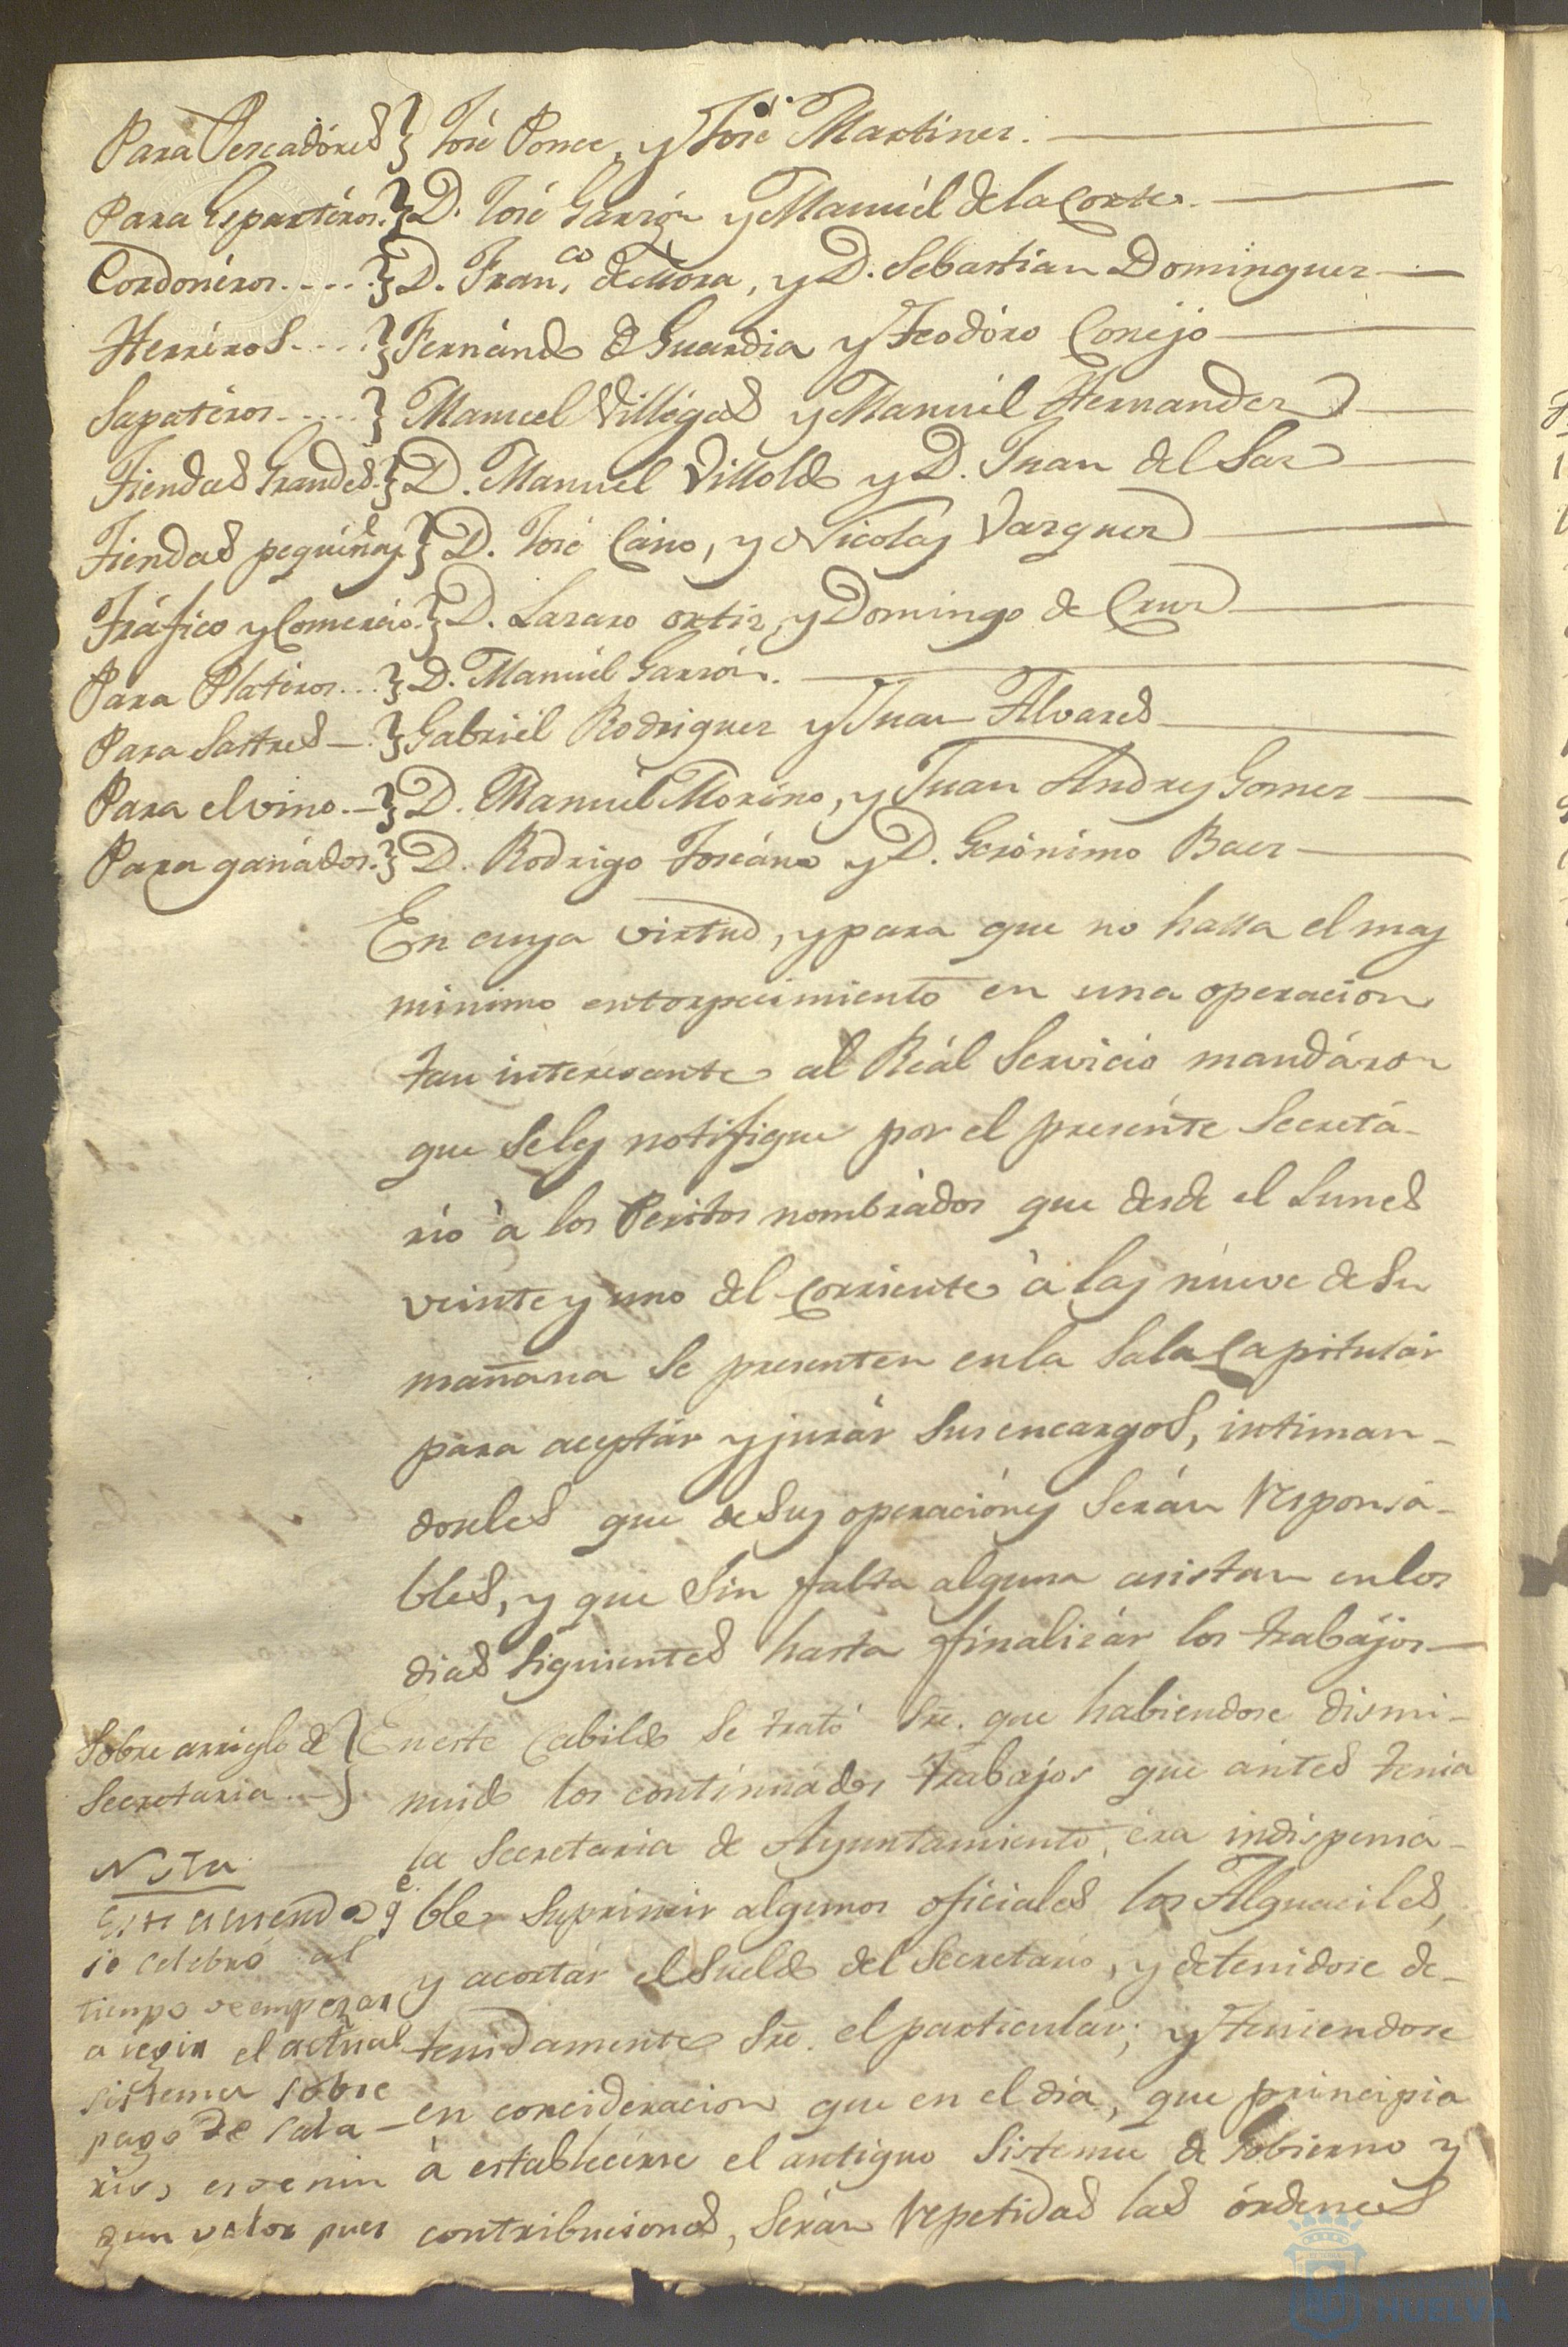 Para Pescadóres } José Ponce, y José Martines.
Para Espartéros. } D. José Garzón y Manuél de la Corte.
Cordonéros..... } D. Franco. de Mora, y D. Sebastian Dominguez
Herréros..... } Fernándo de Guardia y Teodóro Conejo
Sapatéros..... } Manuel Villégas y Manuél Hernandez
Tiendas Grandes. } D. Manuel Villoldo y D. Juan del Saz
Tiendas pequéñas. } D. José Cano, y Nicolas Vazquez
Tráfico y Comercio. } D. Lazaro ortiz, y Domingo de Cruz
Para Platéros... } D. Manuél Garzón.
Para Sastres — } Gabriél Rodriguez y Juan Alvares
Para el vino. — } D. Manuél Moréno, y Juan Andres Gomez
Para ganádos. } D. Rodrigo Toscáno y D. Gerónimo Baez
En cuya virtud, y para que no halla el mas
minimo entorpecimiento en una operacion
tan interesante al Reál Servicio mandáron
que se les notifique por el presénte Secretá-
rio à los Peritos nombrádos que desde el Lunes
veinte y uno del corriente à las nueve de su
mañana se presenten en la Sala Capitular
para aceptár y jurár sus encargos, intiman-
doseles que de sus operaciónes serán responsá-
bles, y que sin falta alguna asistan en los
dias siguientes hasta finalizár los trabájos
Sobre arreglo de
Secretaria.
En este Cabildo se trató sre. que habiendose dismi-
nuido los continuados trabajos que ántes tenia
la Secretaria de Ayuntamiento, éra indispensá-
ble suprimir algunos oficiales los Alguaciles,
y acortár el sueldo del Secretario, y detenidose de-
tenidamente sre. el particular; y teniendose
en concideracion que en el dia, que principia
á establecérse el antiguo Sistema de Gobierno y
contribuciones, serán repetidas las órdenes
Nota
Este acuerdo qe.
se celebró al
tiempo de empezar
a regir el actual
sistema sobre
pago de sala-
rios, es de nin
gun valor pues
HUELVA